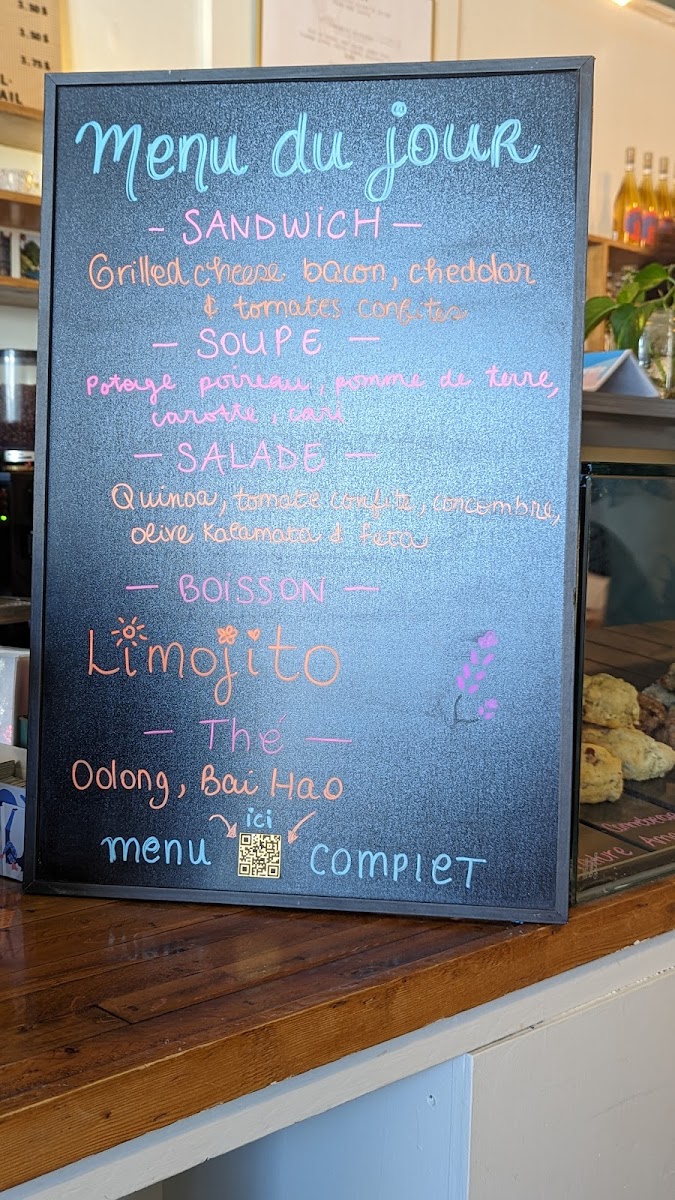 3.50$
3.50$
3.75$
Menu du jour
- SANDWICH -
Grilled cheese bacon, cheddar
& tomates confites
- SOUPE -
Potage poireau, pomme de terre,
carotte, cari
- SALADE -
Quinoa, tomate confite, concombre,
olive Kalamata & feta
- BOISSON -
Limojito
- Thé -
Oolong, Bai Hao
ici
menu complet